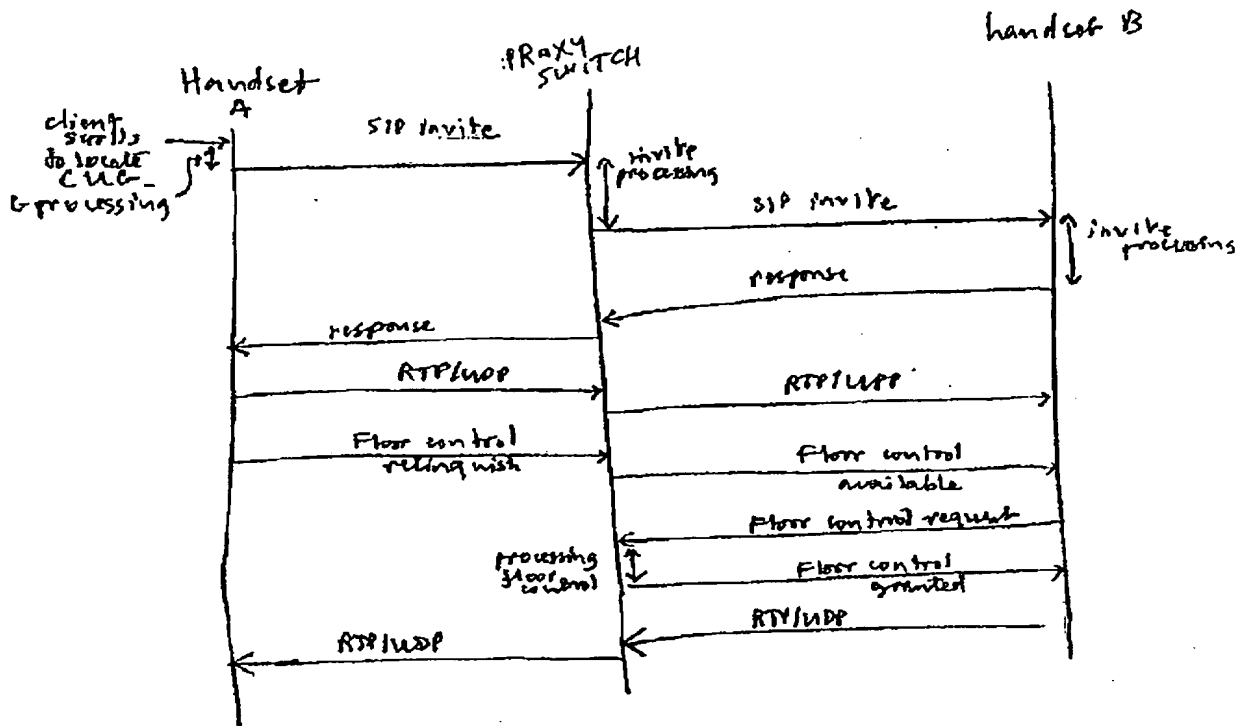 Handset
A
:PROXY
SWITCH
handset B
client
scrolls
to locate
CUG
& processing
SIP invite
invite
processing
SIP invite
invite
processing
response
response
RTP/UDP
RTP/UDP
Floor control
relinquish
Floor control
available
Floor control request
processing
floor
control
Floor control
granted
RTP/UDP
RTP/UDP